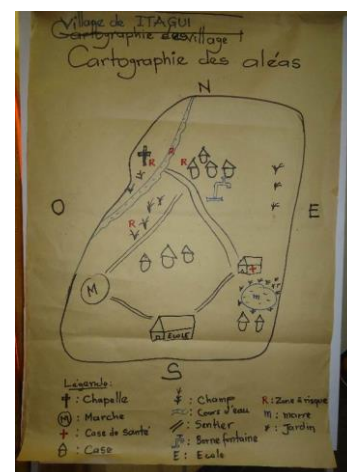 Village de ITAGUI
Cartographie des village
Cartographie des aléas
N
R
R
R
O
E
R
M
m
ECOLE
S
Légende:
: Chapelle
M : Marche
+ : Case de Santé
: Case
: Champ
: Cours d'eau
: Sentier
: Borne fontaine
E : Ecole
R : Zone à risque
m : marre
: Jardin